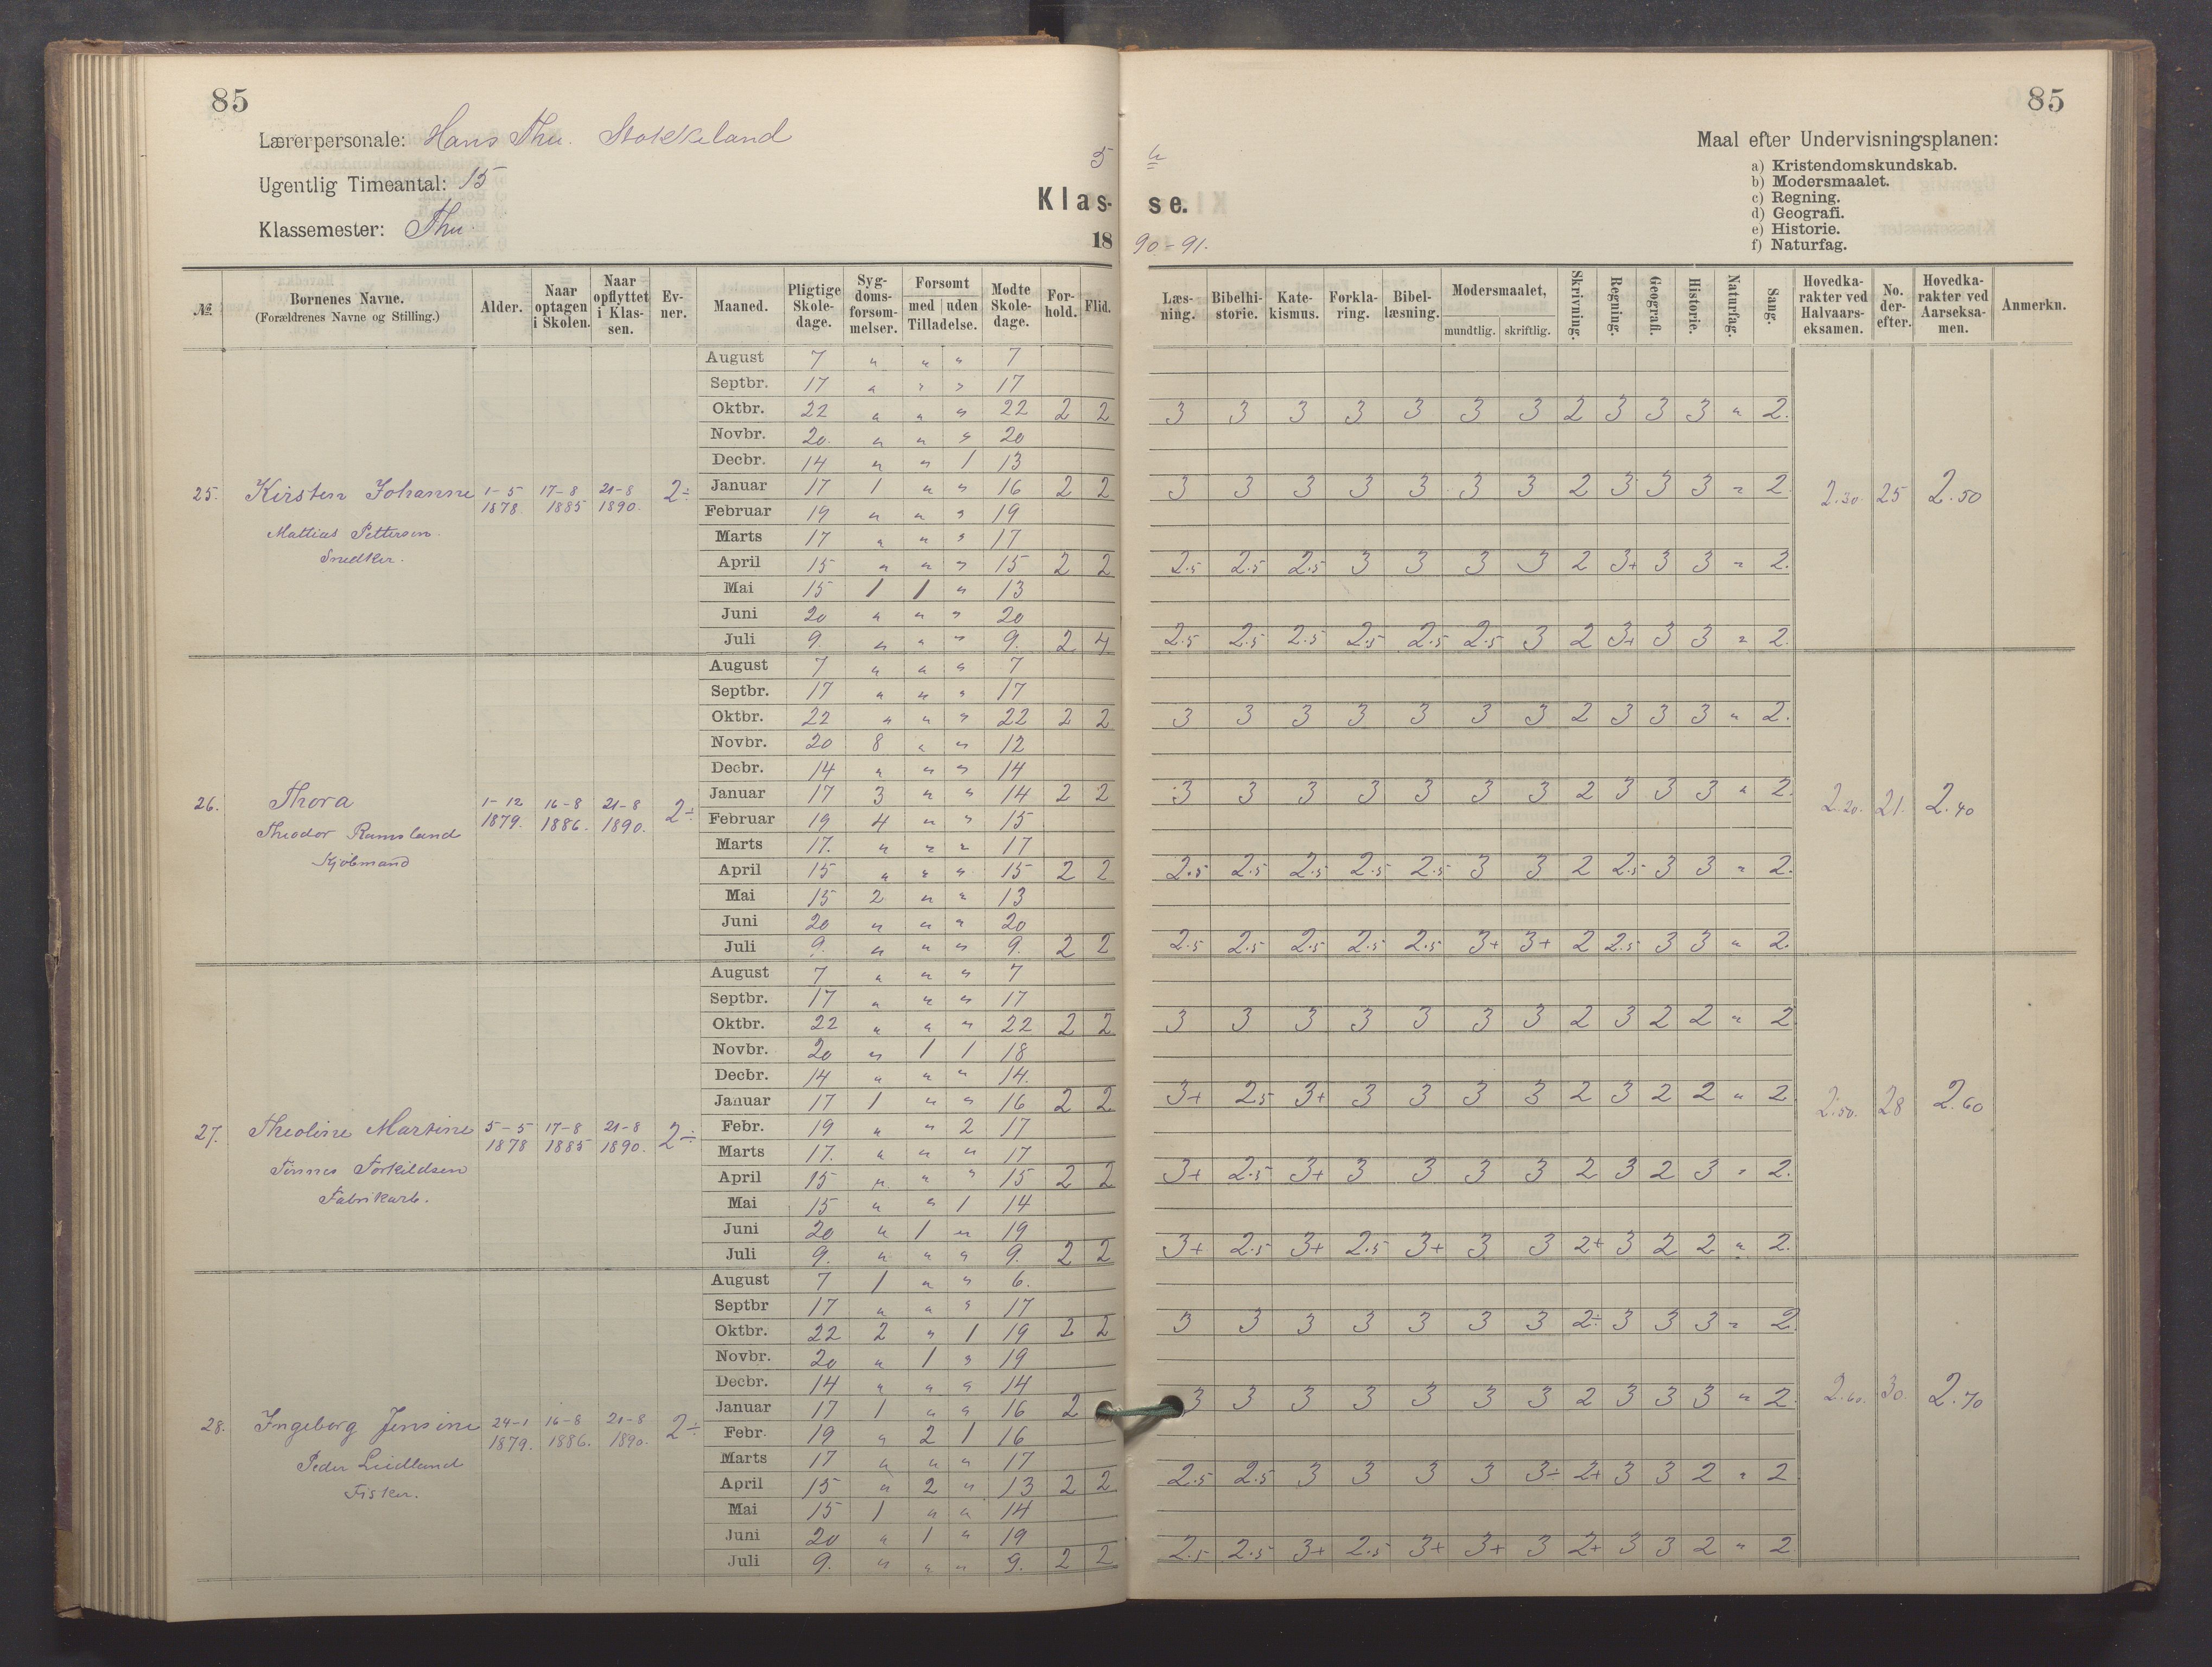 85
Lærerpersonale: Hans Thu. Stokkeland
Ugentlig Timeantal: 15
Klassemester: Thu.
5
Klas-
18
№
Børnenes Navne. (Forældrenes Navne og Stilling.)
Alder.
Naar optagen i Skolen.
Naar opflyttet i Klassen.
Evner.
Maaned.
Pligtige Skoledage.
Sygdomsforsømmelser.
Forsømt
med uden
Tilladelse.
Mødte Skoledage.
Forhold.
Flid.
August 7 " " " 7
Septbr. 17 " " " 17
Oktbr. 22 " " " 22 2 2
Novbr. 20. " " " 20
Decbr. 14 " " 1 13
25. Kirsten Johanne 1-5 17-8 21-8 2÷ Januar 17 1 " " 16 2 2
1878. 1885 1890. Februar 19 " " " 19
Mathias Pettersen. Marts 17 " " " 17
Snedker. April 15 " " " 15 2 2
Mai 15 1 1 " 13
Juni 20 " " " 20
Juli 9. " " " 9. 2 4
August 7 " " " 7
Septbr. 17 " " " 17
Oktbr. 22 " " " 22 2 2
Novbr. 20 8 " " 12
Decbr. 14 " " " 14
26. Thora 1-12 16-8 21-8 2÷ Januar 17 3 " " 14 2 2
Theodor Ramsland 1879. 1886. 1890. Februar 19 4 " " 15
Kjøbmand Marts 17. " " " 17
April 15 " " " 15 2 2
Mai 15 2 " " 13
Juni 20 " " " 20
Juli 9. " " " 9. 2 2
August 7 " " " 7
Septbr. 17 " " " 17
Oktbr. 22 " " " 22 2 2
Novbr. 20 " 1 1 18
Decbr. 14 " " " 14.
Januar 17 1 " " 16 2 2
27. Theoline Martine 5-5 17-8 21-8 2÷ Febr. 19 " " 2 17
1878 1885 1890. Marts 17. " " " 17
Tønnes Torkildsen April 15 " " " 15 2 2
Fabrikarb. Mai 15 " " 1 14
Juni 20 " 1 " 19
Juli 9. " " " 9. 2 2
August 7 1 " " 6.
Septbr 17 " " " 17
Oktbr. 22 2 " 1 19 2 2
Novbr. 20 " 1 " 19
Decbr. 14 " " " 14
Januar 17 1 " " 16 2
28. Ingeborg Jensine 24-1 16-8 21-8 2÷ Febr. 19 " 2 1 16
1879. 1886. 1890. Marts 17 " " " 17
Peder Leidland April 15 " 2 " 13 2 2
Fisker. Mai 15 1 " " 14
Juni 20 " 1 " 19
Juli 9. " " " 9. 2 2
85
Maal efter Undervisningsplanen:
a) Kristendomskundskab.
b) Modersmaalet.
c) Regning.
d) Geografi.
e) Historie.
f) Naturfag.
se.
90-91.
Læsning.
Bibelhistorie.
Katekismus.
Forklaring.
Bibellæsning.
Modersmaalet,
mundtlig. skriftlig.
Skrivning.
Regning.
Geografi.
Historie.
Naturfag.
Sang.
Hovedkarakter ved Halvaarseksamen.
No. derefter.
Hovedkarakter ved Aarseksamen.
Anmerkn.
3 3 3 3 3 3 3 2 3 3 3 " 2.
3 3 3 3 3 3 3 2 3 3 3 " 2 2.30. 25 2.50
2.5 2.5 2.5 3 3 3 3 2 3+ 3 3 " 2.
2.5 2.5 2.5 2.5 2.5 2.5 3 2 3+ 3 3 " 2.
3 3 3 3 3 3 3 2 3 3 3 " 2.
3 3 3 3 3 3 3 2 3 3 3 " 2. 2.20. 21. 2.40
2.5 2.5 2.5 2.5 2.5 3 3 2 2.5 3 3 " 2.
2.5 2.5 2.5 2.5 2.5 3+ 3+ 2 2.5 3 3 " 2.
3 3 3 3 3 3 3 2 3 2 2 " 2
3+ 2.5 3+ 3 3 3 3 2 3 2 2 " 2 2.50. 28 2.60
3+ 2.5 3+ 3 3 3 3 2 3 2 3 " 2.
3+ 2.5 3+ 2.5 3+ 3 3 2+ 3 2 2 " 2.
3 3 3 3 3 3 3 2÷ 3 3 3 " 2.
3 3 3 3 3 3 3 2 3 3 3 " 2. 2.60. 30. 2.70
2.5 2.5 3 3 3 3 3÷ 2+ 3 3 2 " 2
2.5 2.5 3+ 2.5 3+ 3+ 3 2+ 3 3 2 " 2